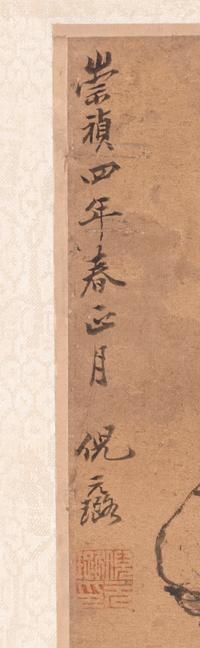 崇禎四年春正月 倪元璐